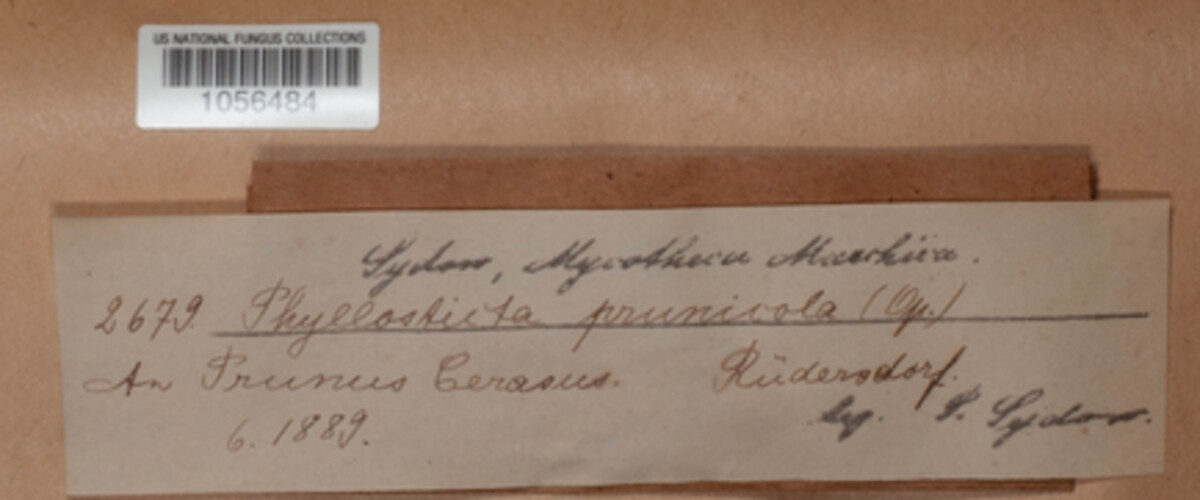 US NATIONAL FUNGUS COLLECTIONS
1056484
Sydow, Mycotheca Marchica.
2679. Phyllosticta prunicola (Op.)
An Prunus Cerasus. Rüdersdorf.
6. 1889. leg. P. Sydow.